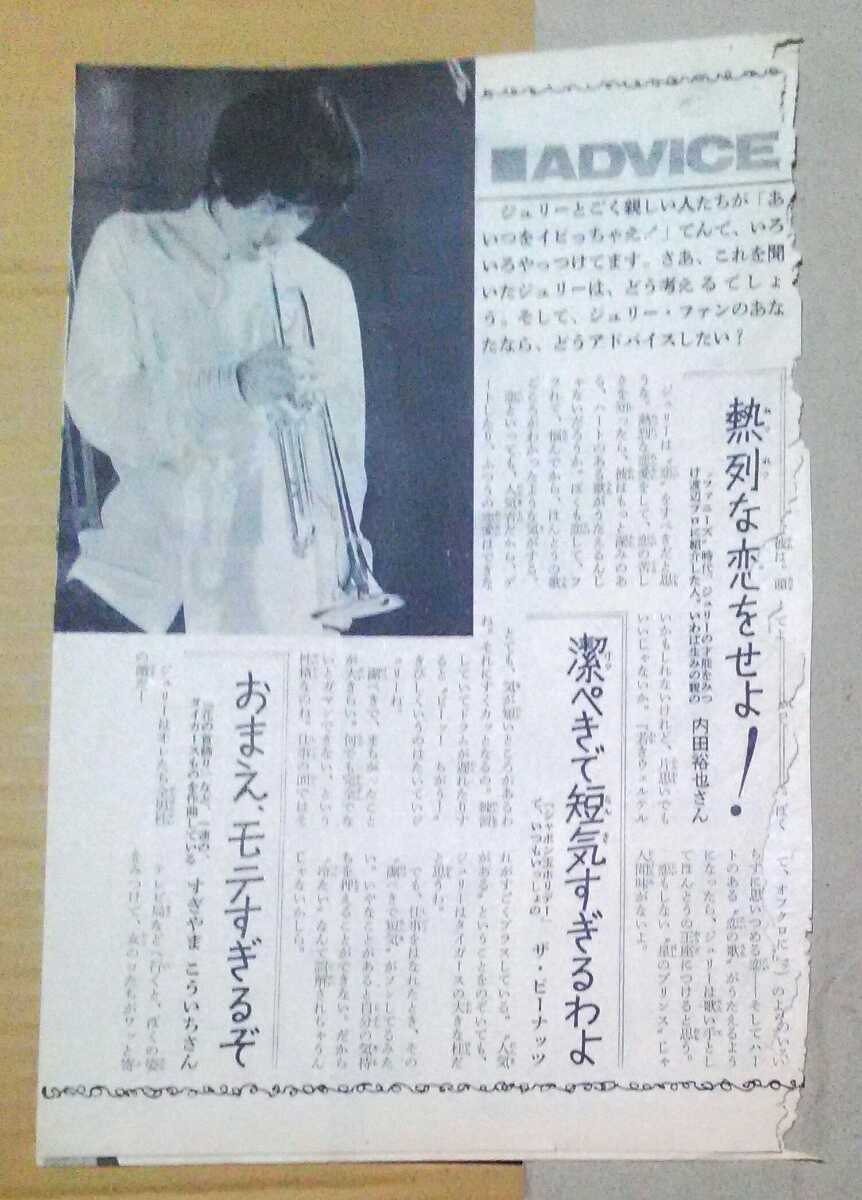 ADVICE
ジュリーとごく親しい人たちが「あ
いつをイビっちゃえ！」てんで、いろ
いろやっつけてます。さあ、これを聞
いたジュリーは、どう考えるでしょ
う。そして、ジュリー・ファンのあな
たなら、どうアドバイスしたい？
熱列な恋をせよ！
"ファニーズ"時代、ジュリーの才能をみつ
け渡辺プロに紹介した人。いわば生みの親の
内田裕也さん
ジュリーは"恋"をすべきだと思
うな。熱烈な恋愛をして、恋の苦し
さを知ったら、彼はもっと深みのあ
る、ハートのある歌がうたえるんじ
ゃないだろうか。ぼくも恋して、フ
ラれて、悩んでから、ほんとうの歌
ごころがわかったような気がする。
恋といっても、人気者だから、デ
ートしたり、ふつうの恋愛はできな
いかもしれないけれど、片思いでも
いいじゃないか。『若きウェルテル
らずに思いつめる恋――そしてハー
トのある"恋の歌"がうたえるよう
になったら、ジュリーは歌い手とし
てほんとうの王座につけると思う。
恋もしない"星のプリンス"じゃ
人間味がないよ。
潔ぺきで短気すぎるわよ
「シャボン玉ホリデー」
で、いつもいっしょの
ザ・ピーナッツ
とても、気が短いところがあるわ
ね。それにすぐカッとなるの。練習
していてドラムが遅れたりす
ると"ピーッ！ちがう！"
きびしくいうのはたいていジ
ュリーね。
潔ぺきで、まちがったこと
が大きらい。何でも完全でな
いとガマンできない、という
性格なのね。仕事の面ではそ
れがすごくプラスしている。"人気
がある"ということをのぞいても、
ジュリーはタイガースの大きな柱だ
と思うわ。
でも、仕事をはなれたとき、その
"潔ぺきで短気"がソンしてるみた
い。いやなことがあると自分の気持
ちを押えることができない。だから
"冷たい"なんて誤解されちゃうん
じゃないかしら。
おまえ、モテすぎるぞ
「花の首飾り」など、一連の、
タイガースものを作曲している
すぎやま こういちさん
ジュリーはオレたち
の敵だ！
テレビ局などへ行くと、ぼくの姿
をみつけて、女のコたちがワッと寄